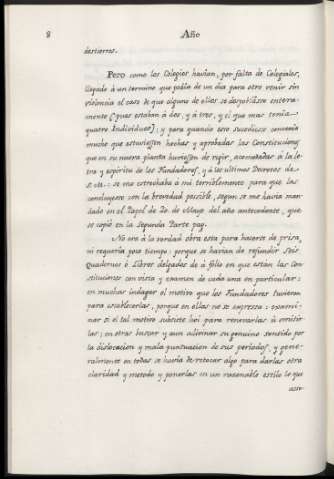 8 Año
destierros.
Pero como los Colegios havian, por falta de Colegiales,
llegado á un termino que podia de un dia para otro venir sin
violencia el caso de que alguno de ellos se despoblàse entera-
mente (pues estaban à dos, y á tres, y el que mas tenìa
quatro Individuos); y para quando eso sucediese convenia
mucho que estuviessen hechas y aprobadas las Constituciones
que en su nueva planta huviessen de regir, acomodadas á la le-
tra y espiritu de los Fundadores, y à los ultimos Decretos de
S. M.: se me estrechaba à mi terriblemente para que las
concluyese con la brevedad posible, segun se me havia man-
dado en el Papel de 20. de Mayo del año antecedente, que
se copiò en la Segunda Parte pag.
No era à la verdad obra esta para hacerse de prisa,
ni requeria poco tiempo: porque se havian de refundir Seis
Quadernos ò Libros delgados de à folio en que estan las Con-
stituciones con vista y examen de cada una en particular:
en muchas indagar el motivo que los Fundadores tuvieron
para establecerlas, porque en ellas no se expressa: exami-
nar si el tal motivo subsiste hoi para renovarlas ò omitir-
las; en otras buscar y aun adivinar su genuino sentido por
la dislocacion y mala puntuacion de sus periodos, y gene-
ralmente en todas se havia de retocar algo para darlas otra
claridad y metodo y ponerlas en un razonable estilo lo que